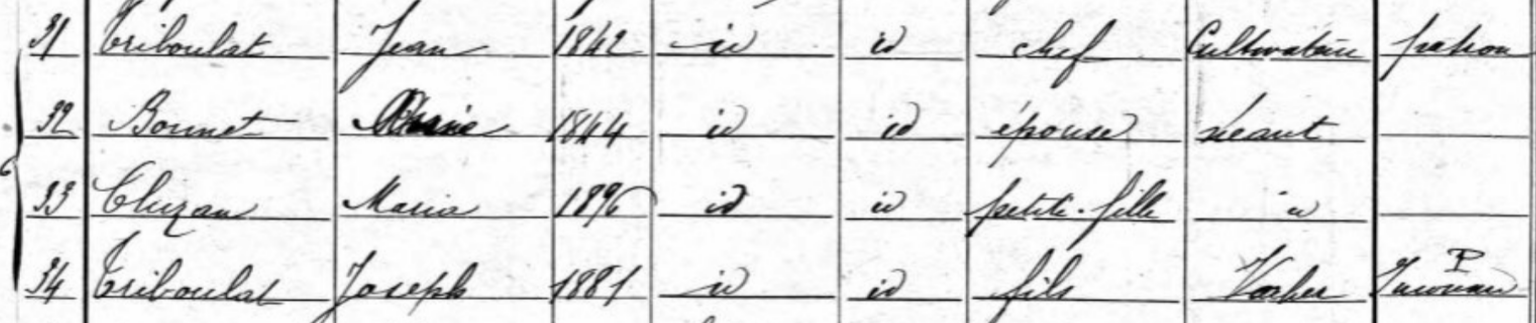 31 Triboulat Jean 1842 id id chef Cultivateur patron
32 Bonnet Marie 1844 id id épouse néant
33 Cluzan Maria 1896 id id petite-fille id
34 Triboulat Joseph 1881 id id fils P